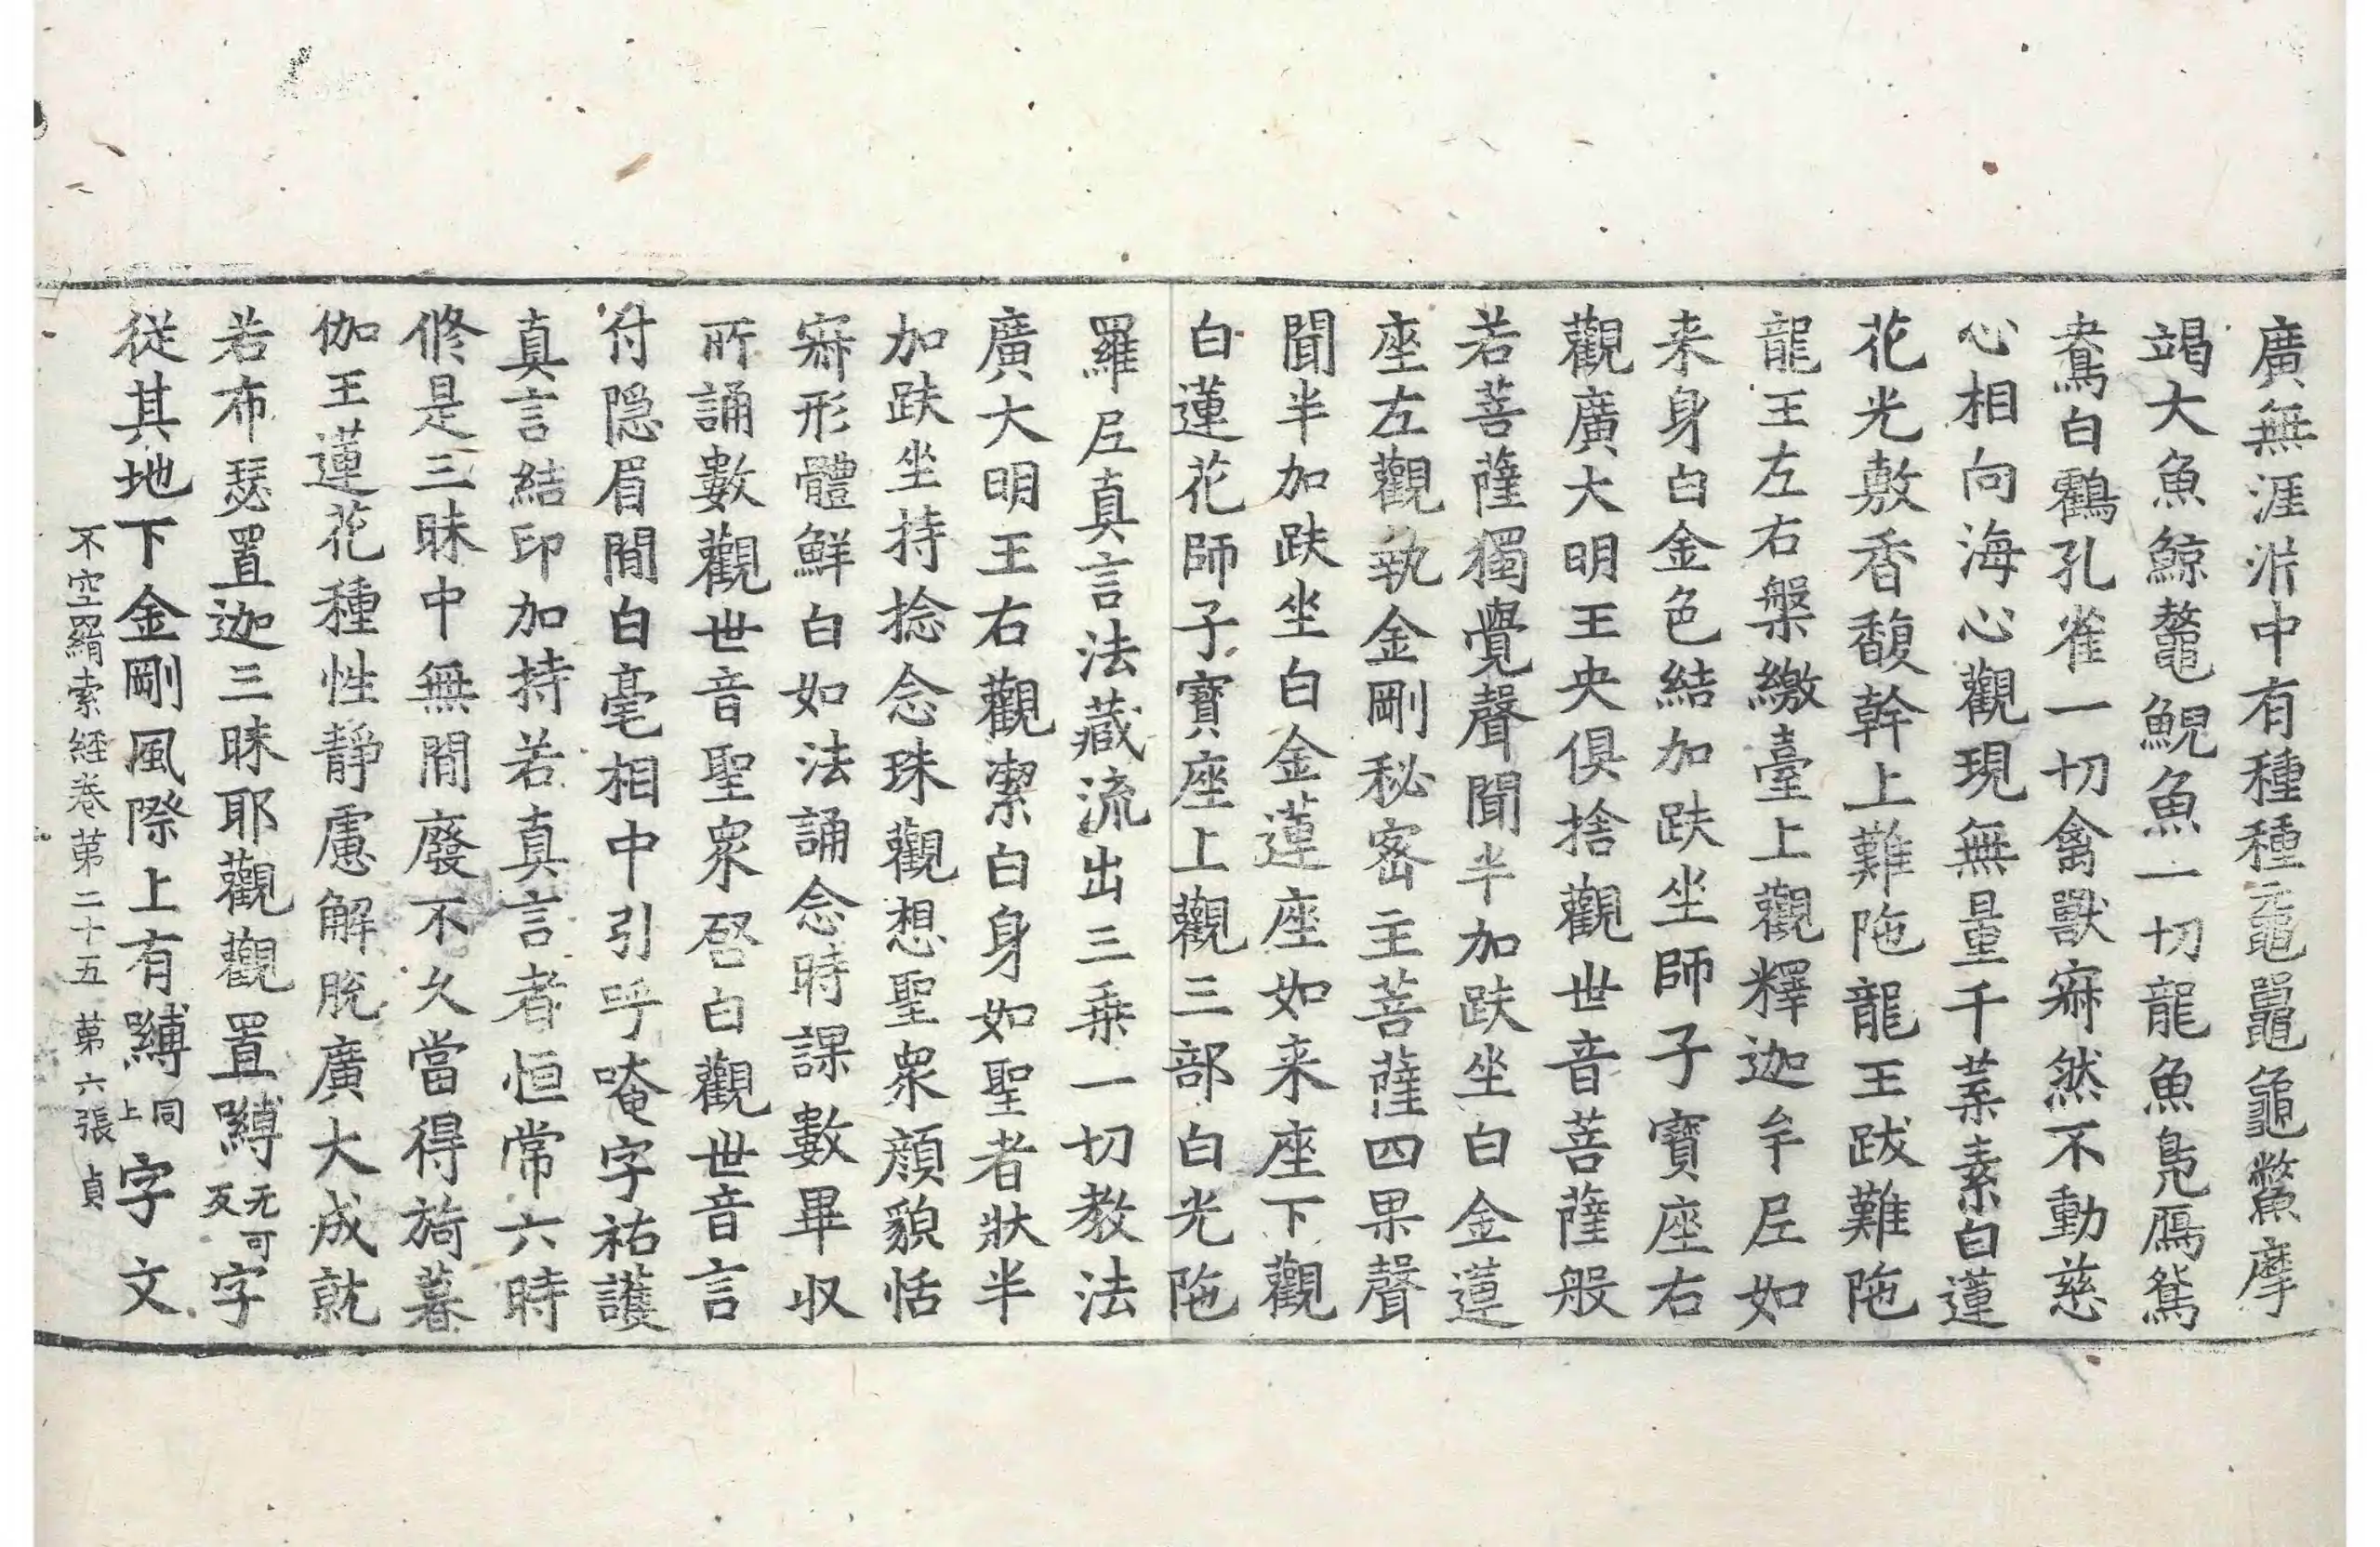 廣無涯泝中有種種黿鼉龜鱉摩
竭大魚鯨鼇鯢魚一切龍魚鳧鴈鴛
鴦白鸖孔雀一切禽獸寂然不動慈
心相向海心觀現無量千葉素白蓮
花光敷香馥幹上難陁龍王跋難陁
龍王左右槃繳臺上觀釋迦牟尼如
来身白金色結加趺坐師子寶座右
觀廣大明王央俱捨觀世音菩薩般
若菩薩獨覺聲聞半加趺坐白金蓮
座左觀執金剛秘密主菩薩四果聲
聞半加趺坐白金蓮座如来座下觀
白蓮花師子寶座上觀三部白光陁
羅尼真言法藏流出三乗一切教法
廣大明王右觀潔白身如聖者狀半
加趺坐持捻念珠觀想聖衆顔貌恬
寂形體鮮白如法誦念時課數畢収
所誦數觀世音聖衆啓白觀世音言
付隠眉間白毫相中引呼唵字祐護
真言結印加持若真言者恒常六時
修是三昧中無間廢不久當得旖暮
伽王蓮花種性靜慮解脫廣大成就
若布瑟置迦三昧耶觀觀置䫫无可反字
従其地下金剛風際上有䫫同上字文
不空羂索経卷第二十五 第六張 貞